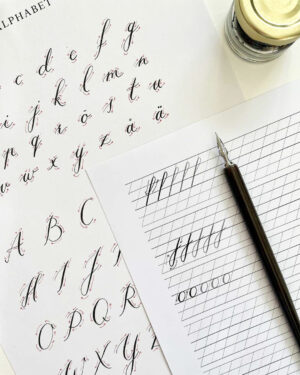 ALPHABET
c d e f g
i j k l m n
p q r s t u
w x y z å ä
A B C
H I J
O P Q R
W X Y
f f f f f
o o o o o